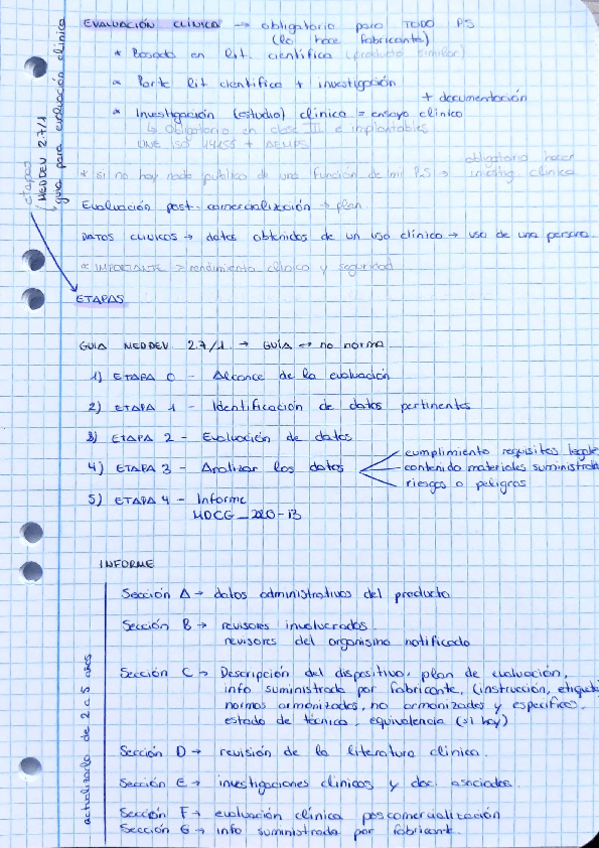 EVALUACIÓN CLÍNICA → obligatorio para TODO PS
(lo hace fabricante)
* Basada en lit. científica (producto similar)
* Parte lit científica + investigación
+ documentación
* Investigación (estudio) clínica = ensayo clínico
↳ Obligatorio en clase III e implantables
UNE ISO 14155 + AEMPS
obligatorio hacer
* si no hay nada publico de una función de mi PS → investig. clínica
Evaluación post-comercialización → plan
DATOS CLINICOS → datos obtenidos de un uso clínico → uso de una persona.
* IMPORTANTE > rendimiento clínico y seguridad
etapas
MEDDEV 2.7/1
guía para evaluación clínica
ETAPAS
GUIA MEDDEV 2.7/1 → GUÍA ↔ no norma
1) ETAPA 0 - Alcance de la evaluación
2) ETAPA 1 - Identificación de datos pertinentes
3) ETAPA 2 - Evaluación de datos
cumplimiento requisitos legales
4) ETAPA 3 - Analizar los datos contenido materiales suministra
riesgos o peligros
5) ETAPA 4 - Informe
MDCG_220-13
INFORME
Sección A → datos administrativos del producto
Sección B → revisores involucrados
revisores del organismo notificado
Sección C → Descripción del dispositivo, plan de evaluación,
info suministrada por fabricante, (instrucción, etiqueta
normas armonizadas, no armonizadas y específicas,
estado de técnica, equivalencia (si hay)
Sección D → revisión de la literatura clínica.
Sección E → investigaciones clínicas y doc. asociados
Sección F → evaluación clínica poscomercialización
Sección G → info suministrada por fabricant.
actualizarlo de 2 a 5 años